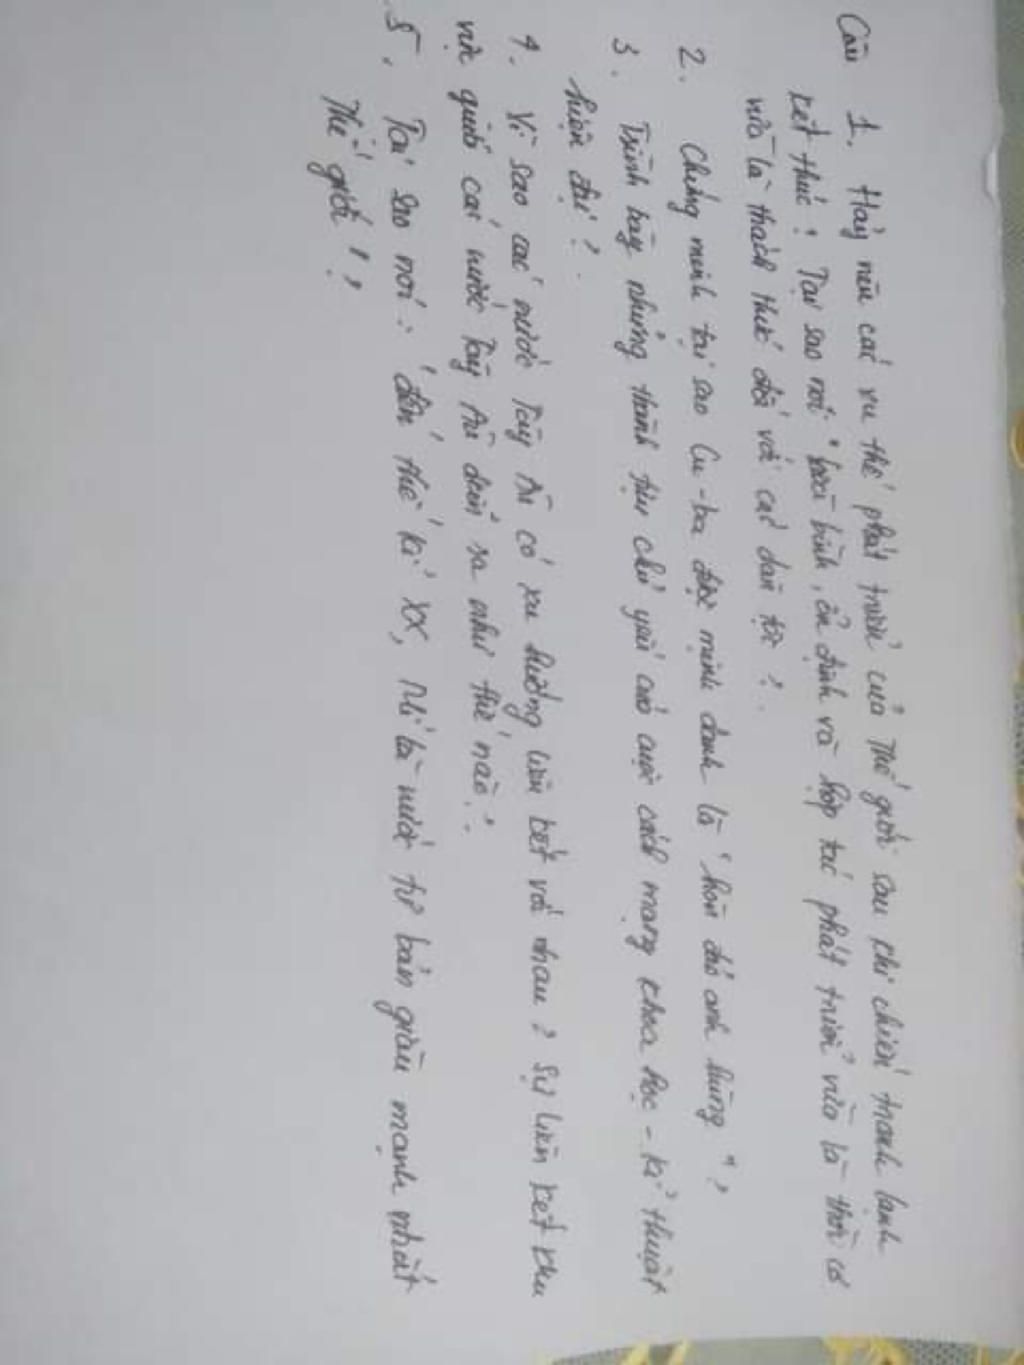 Câu 1. Hãy nêu các xu thế phát triển của Thế giới sau khi chiến tranh lạnh
kết thúc? Tại sao nói "hoà bình, ổn định và hợp tác phát triển vừa là thời cơ
vừa là thách thức đối với các dân tộc?.
2. Chứng minh tại sao Cu-ba được mệnh danh là "hòn đảo anh hùng"?
3. Trình bày những thành tựu chủ yếu của cuộc cách mạng khoa học - kĩ thuật
hiện đại?.
4. Vì sao các nước Tây Âu có xu hướng liên kết với nhau? Sự liên kết khu
vực giữa các nước Tây Âu diễn ra như thế nào?.
5. Tại sao nói: đến thế kỉ XX, Mĩ là nước tư bản giàu mạnh nhất
Thế giới!?